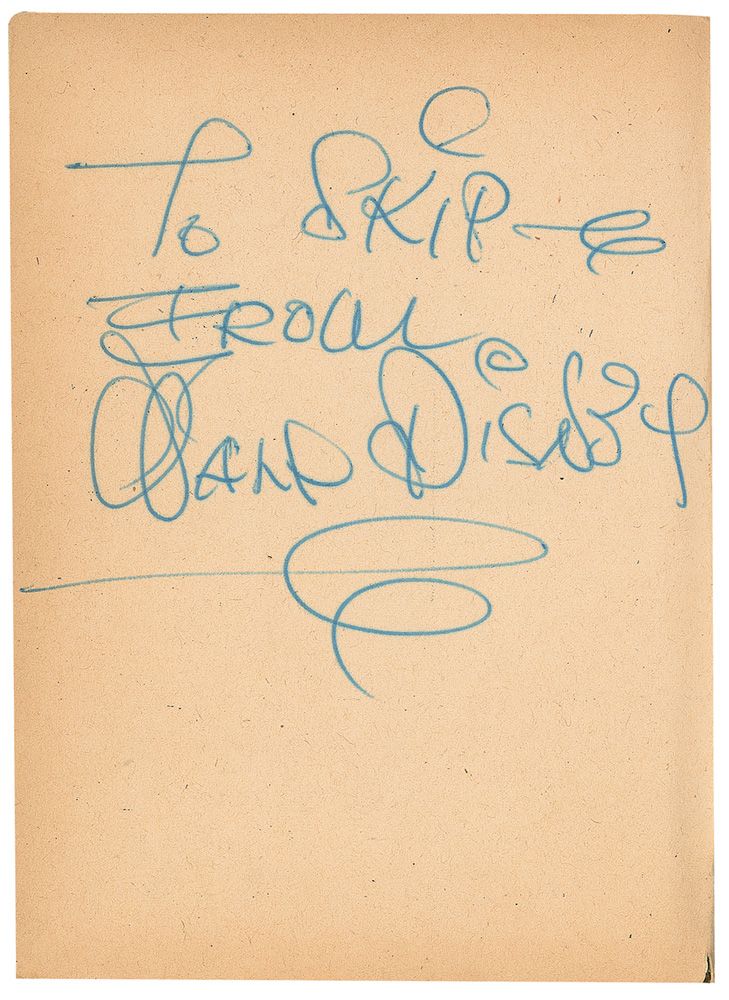 To SKIP —
FROM
WALT DISNEY